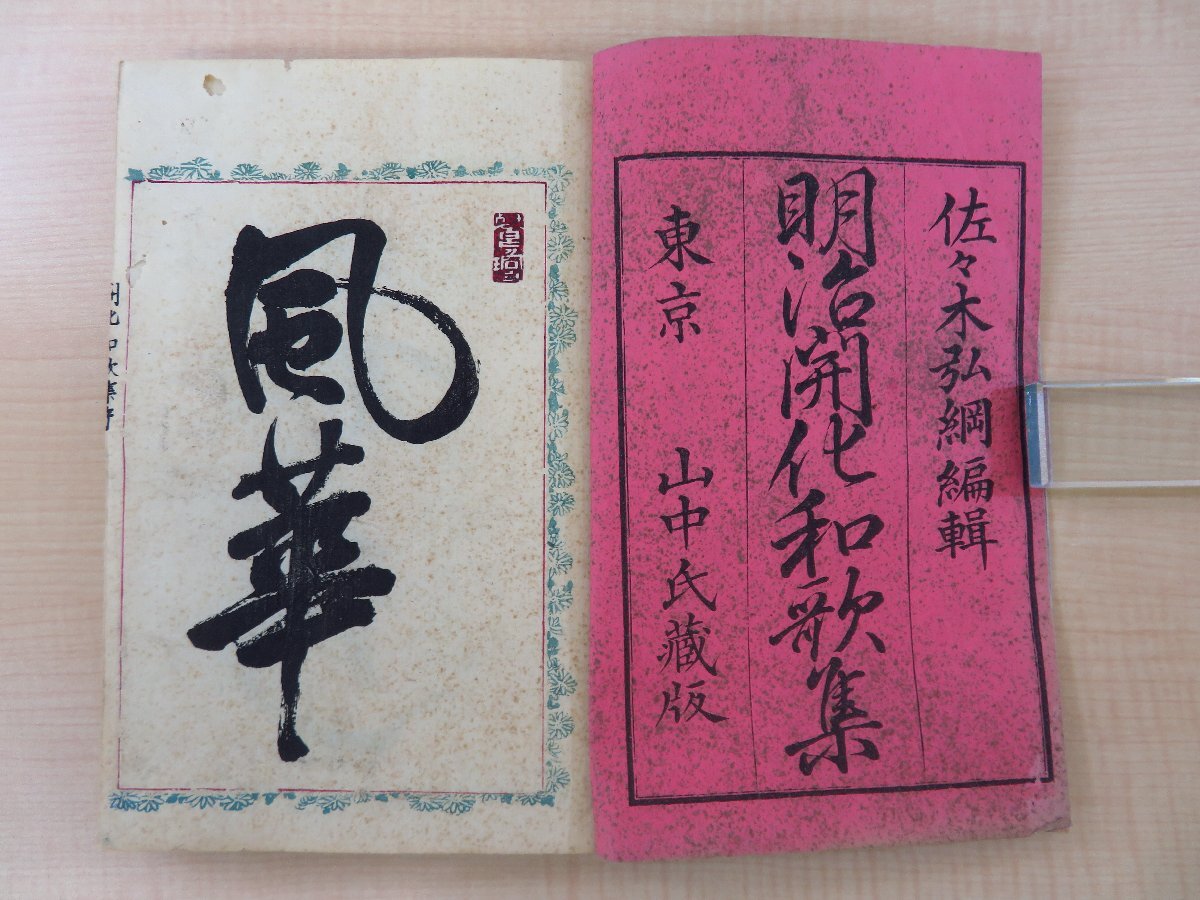 佐々木弘綱編輯
明治開化和歌集
東京 山中氏藏版
風華